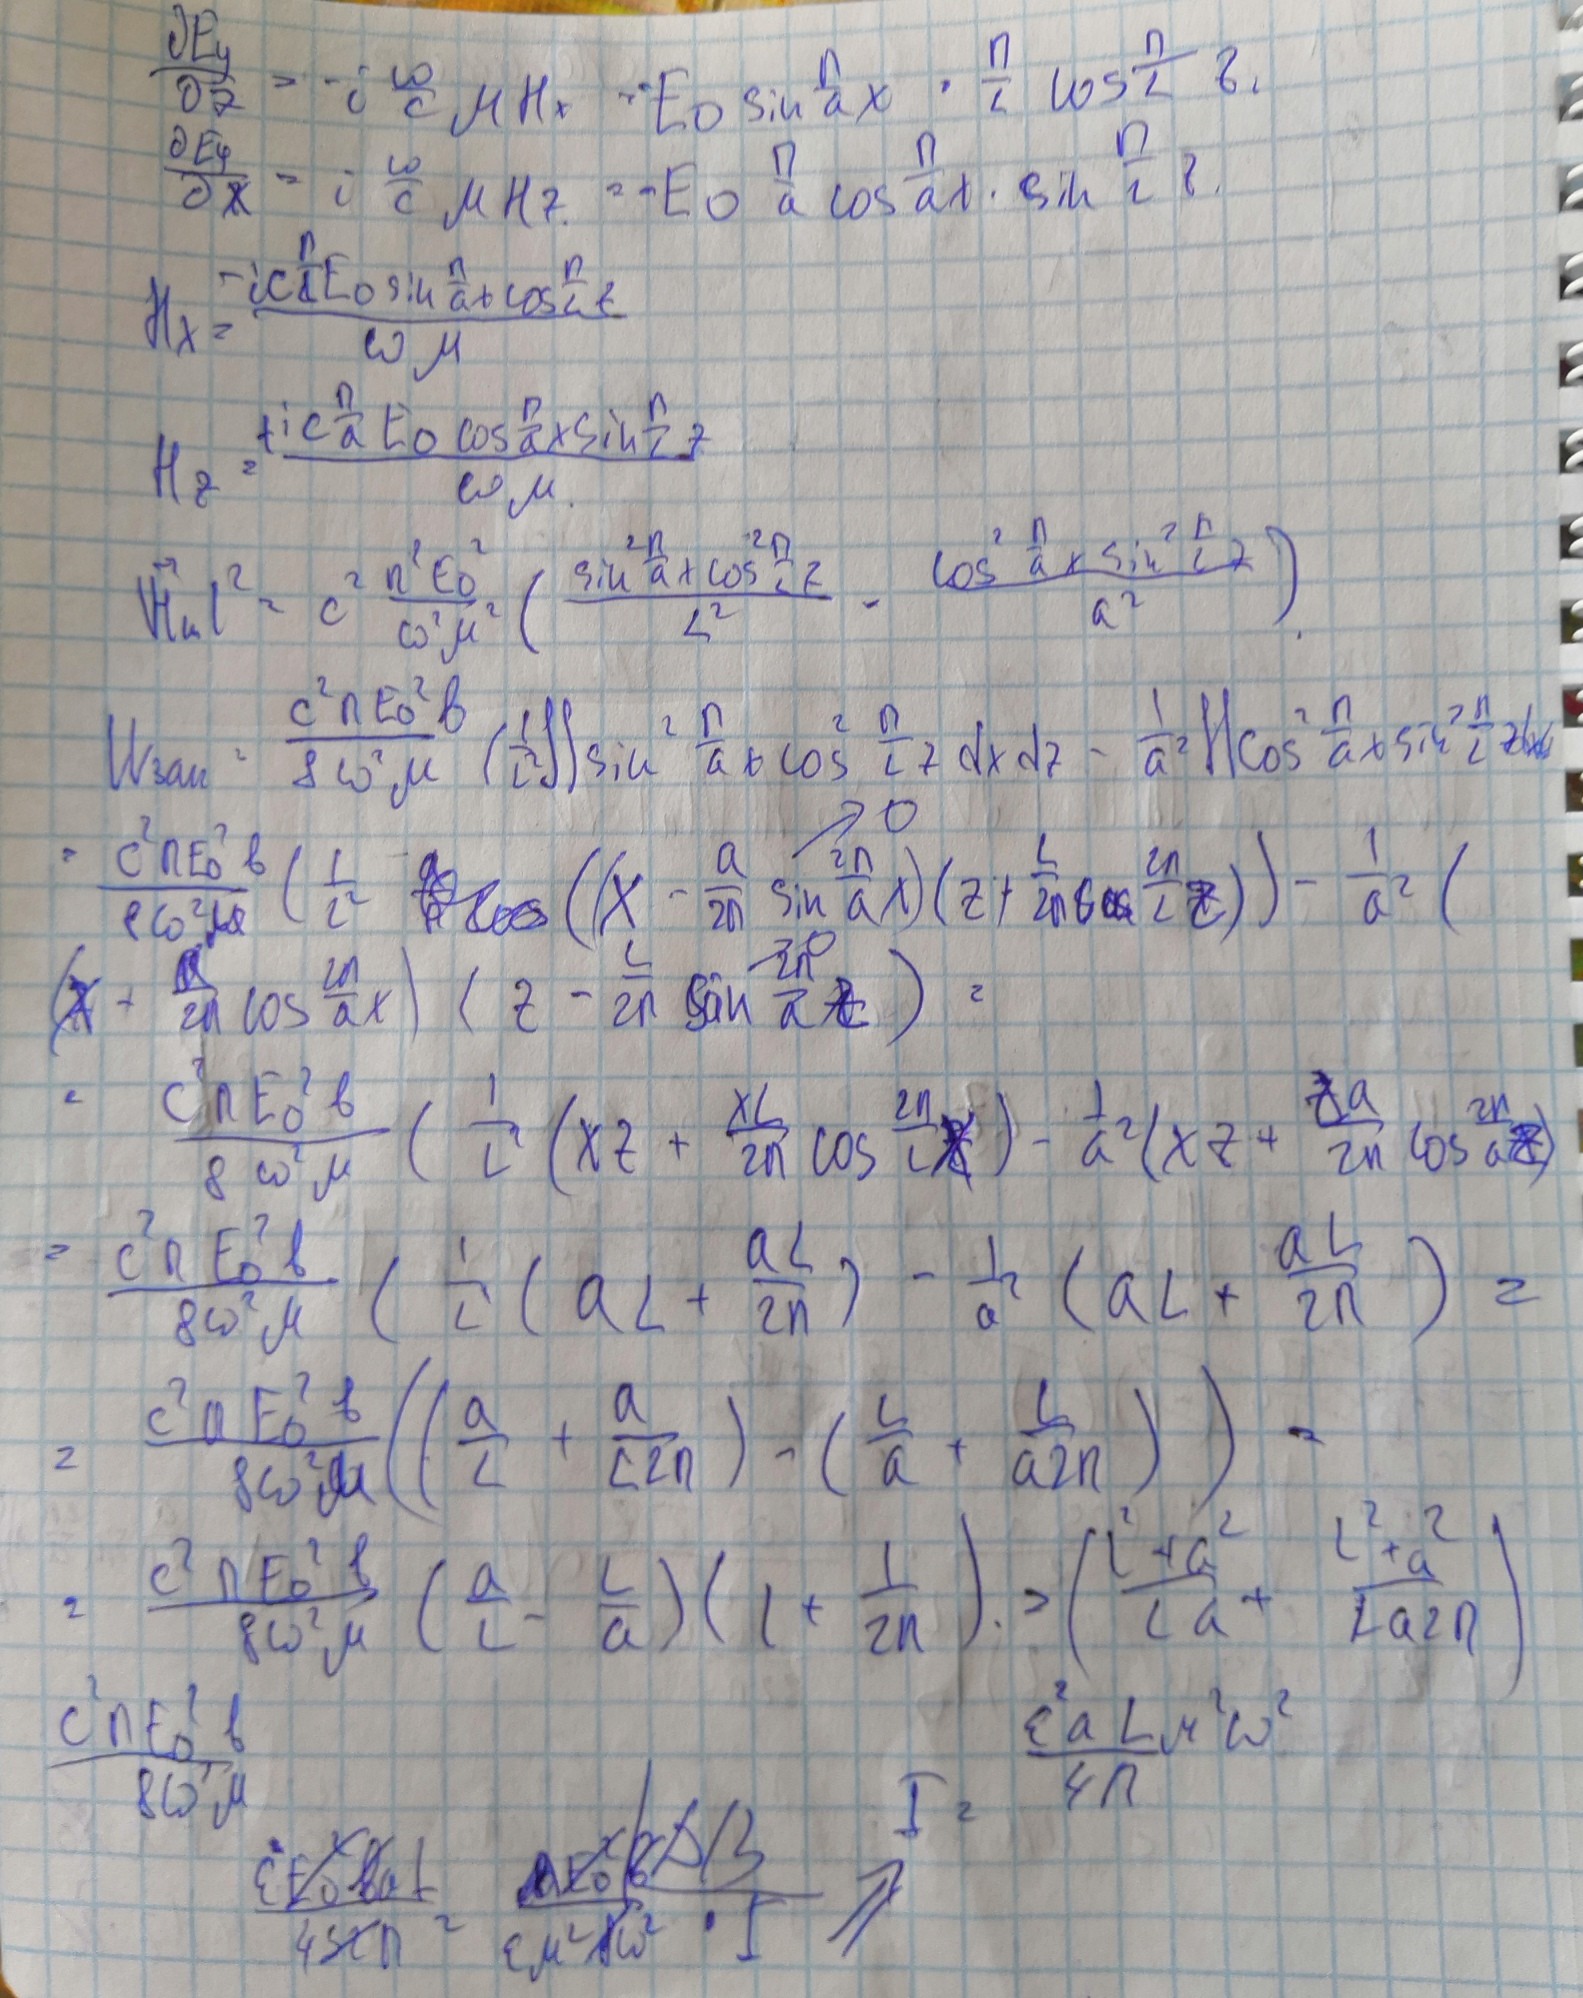 ∂Ey/∂z = -i ω/c μ Hx = -E0 sin π/a x · π/L cos π/L z.
∂Ey/∂x = i ω/c μ Hz. = -E0 π/a cos π/a x · sin π/L z.
Hx = -ic π/L E0 sin π/a x cos π/L z / ωμ
Hz = +ic π/a E0 cos π/a x sin π/L z / ωμ.
|Hm|² = c² π²E0²/ω²μ² ( sin² π/a x cos² π/L z / L² - cos² π/a x sin² π/L z / a² ).
Wзап = c²πE0²b/8ω²μ (1/L² ∬ sin² π/a x cos² π/L z dx dz - 1/a² ∬ cos² π/a x sin² π/L z dxdz
= c²πE0²b/8ω²μ ( 1/L² ((x - a/2π sin 2π/a x)(z + L/2π cos 2π/L z)) - 1/a² ( → 0
(x + a/2π cos 2π/a x) ( z - L/2π sin 2π/a z ) = → 0
= c²πE0²b/8ω²μ ( 1/L² (xz + xL/2π cos 2π/L z) - 1/a² (xz + za/2π cos 2π/a z)
= c²πE0²b/8ω²μ ( 1/L² ( aL + aL/2π ) - 1/a² ( aL + aL/2π ) =
= c²πE0²b/8ω²μ (( a/L + a/L2π ) - ( L/a + L/a2π )) =
= c²πE0²b/8ω²μ ( a/L - L/a )( 1 + 1/2π ). => ( L²+a²/La + L²+a²/La2π )
c²πE0²b/8ω²μ
I = ε²aLμ²ω²/4π